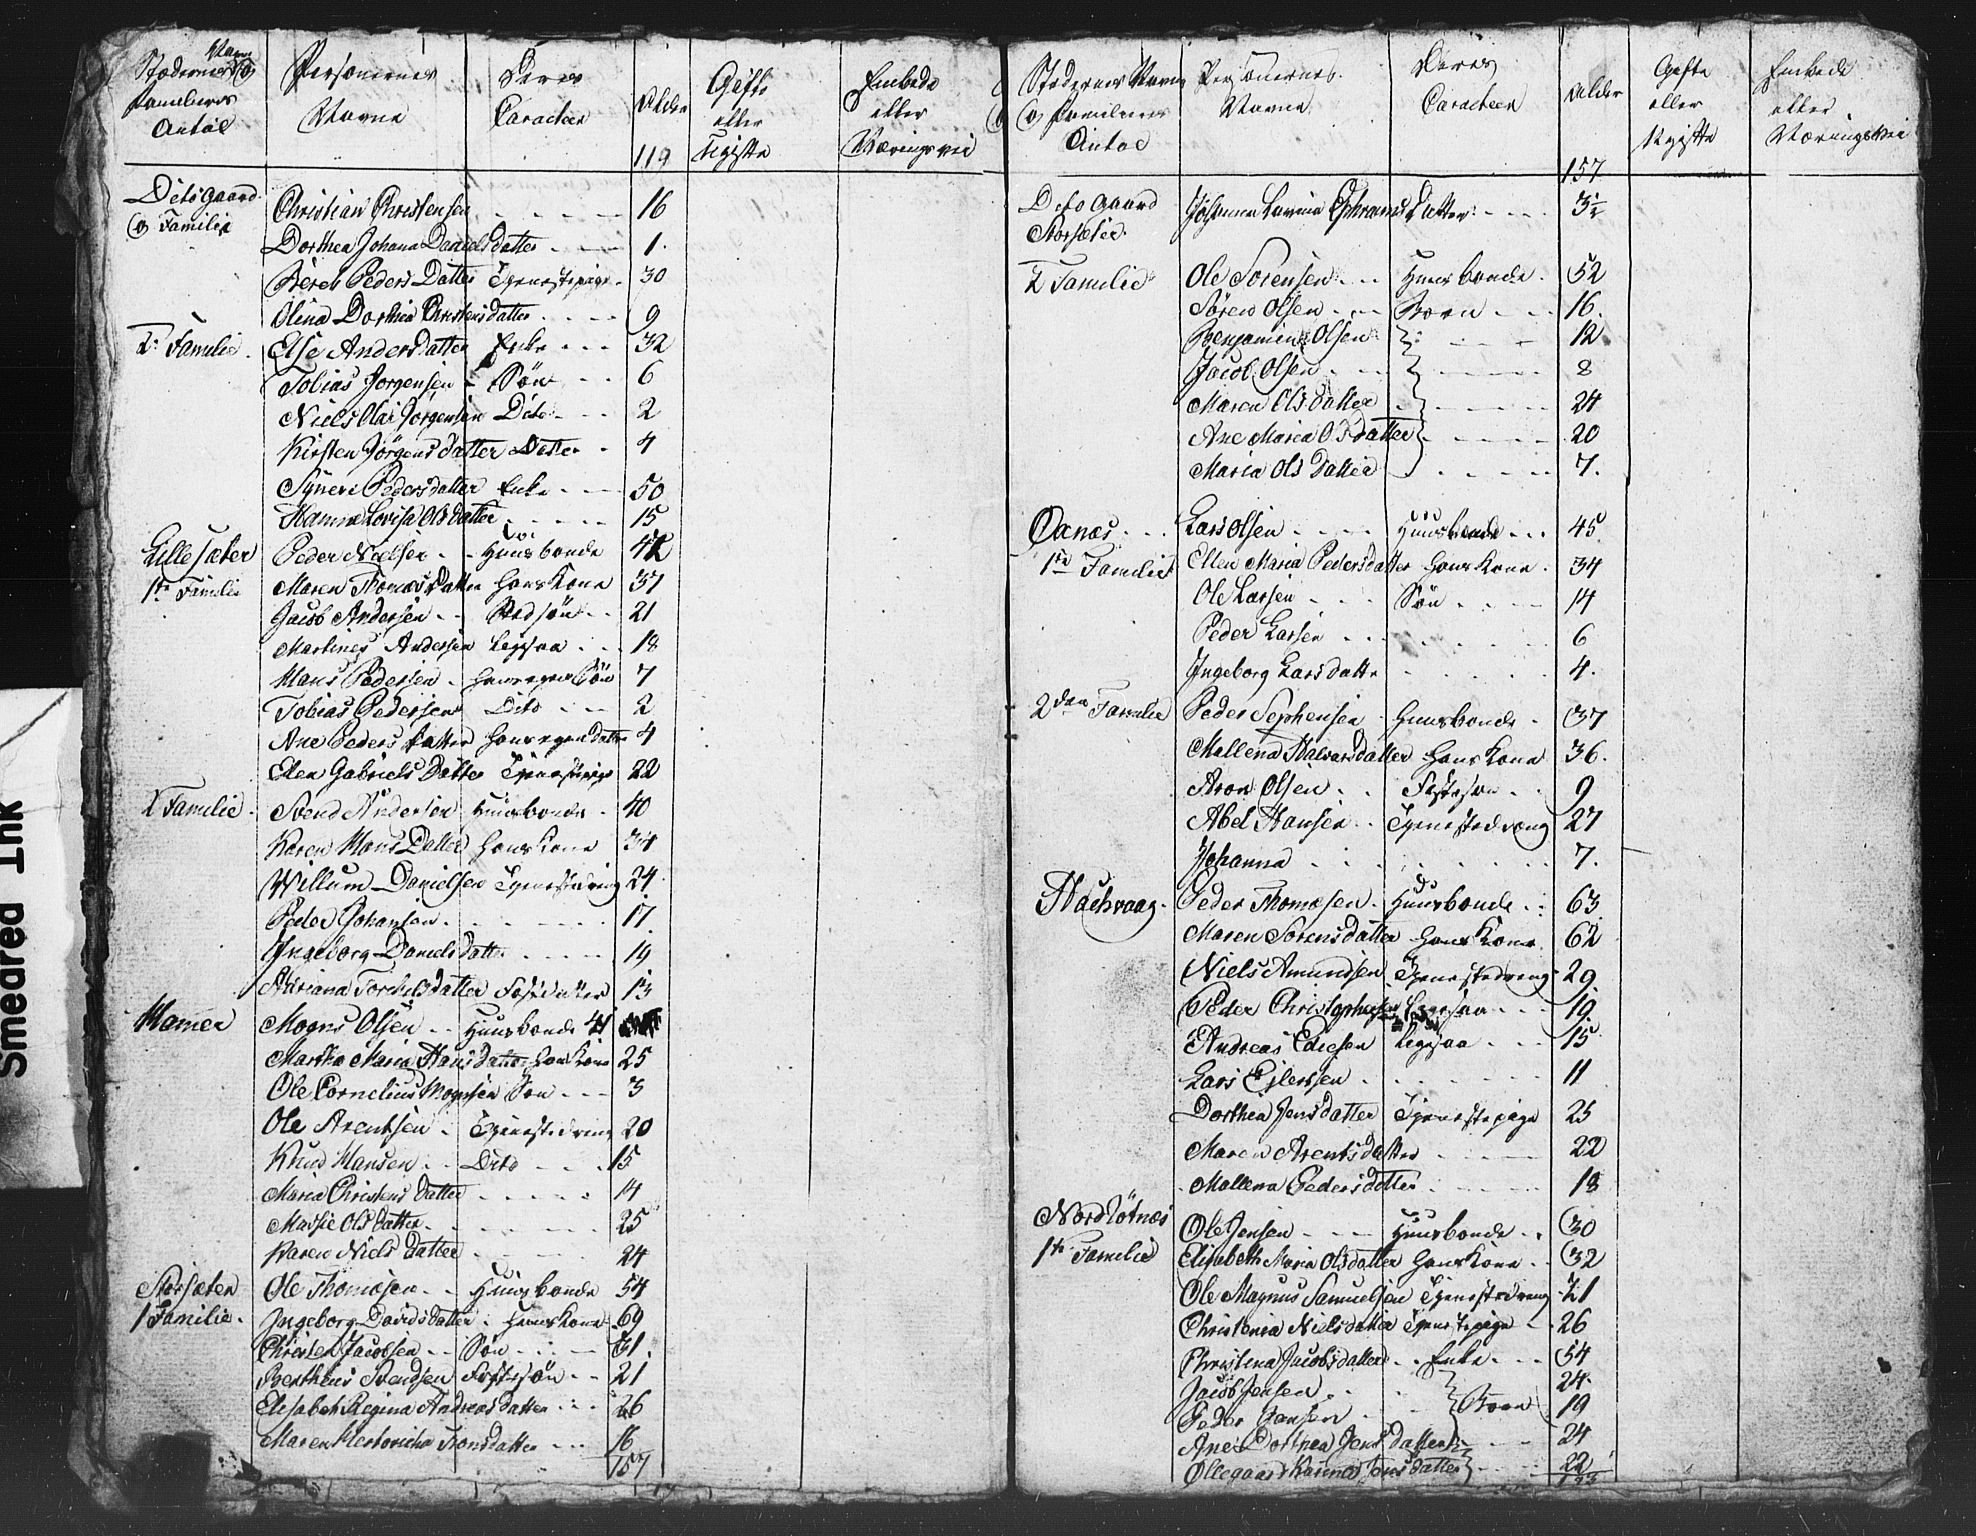 Stædernes Navn og Familiers Antal
Personernes Navne
Deres Caracteer
Alder
Gifte eller Ugifte
Embede eller Næringsvei
119
Dito Gaard
og Familie
Christian Christensen 16
Dorthea Johana Danielsdatter 1
Beret Peders Datter Tjenestepige 30
Olina Dorthea Christensdatter 9
2. Familie Else Andersdatter Enke 32
Tobias Jørgensen Søn 6
Niels Olai Jørgensen Dito 2
Kirsten Jørgensdatter Datter 4
Synere Pedersdatter Enke 50
Hanna Lovisa Olsdatter 15
Lille sæter Peder Nielsen Huusbonde
1te Familie Maren Thomasdatter Hans Kone 37
Jacob Andersen Stedsøn 21
Martines Andersen Legsaa 18
Hans Pedersen hans egen Søn 7
Tobias Pedersen Dito 2
Ane Pedersdatter hans egen datter 4
Elen Gabriels Datter Tjenestepige 22
2 Familie Svend Andersen Huusbonde 40
Karen Hans Datter Hans Kone 34
Willum Danielsen Tjenestedreng 24
Peder Johansen 17
Ingeborg Danielsdatter 19
Adriana Torchelsdatter Fostdatter 13
Hamer Mogns Olsen Huusbonde 41
Martha Maria Hansdatter Hans Kone 25
Ole Cornelius Mognsen Søn 3
Ole Arentsen Tjenestedreng 20
Knud Hansen Dito 15
Maria Christensdatter 14
Marsie Olsdatter 25
Karen Nielsdatter 24
Storsæter Ole Thomæsen Huusbonde 54
1 Familie Ingeborg Davidsdatter Hans Kone 69
Christen Jacobsen Søn 31
Bertheus Svendsen Fostesøn 21
Elisabeh Regina Andreasdatter 26
Maren Tronsdatter 16
157
Stædernes Navn og Familiernes Antal
Personernes Navne
Deres Caracteer
Alder
Gifte eller Ugifte
Embede eller Næringsvei
157
Dito Gaard Johanna Lavina Ephraimsdatter 3½
Storsæter
2 Familie Ole Sørensen Huusbonde 52
Søren Olsen Børn 16
Benjamin Olsen 12
Jacob Olsen 8
Maren Olsdatter 24
Ane Maria Olsdatter 20
Maria Olsdatter 7
Oxnæs Lars Olsen Huusbonde 45
1te Familie Ellen Maria Pedersdatter Hans Kone 34
Ole Larsen Søn 14
Peder Larsen 6
Ingeborg Larsdatter 4
2den Familie Peder Sephensen Huusbonde 37
Mallena Halvarsdatter Hans Kone 36
Aron Olsen Fostesøn 9
Abel Hansen Tjenestedreng 27
Johanna 7
Peder Thomæsen Huusbonde 63
Maren Sørensdatter Hans Kone 62
Niels Amundsen Tjenestedreng 29
Peder Christophersen Legsaa 19
Andreas Edicsen Legsaa 15
Lars Ejlersen 11
Dorthea Jensdatter Tjenestepige 25
Maren Arentsdatter 22
Mallena Pedersdatter 18
Nordløtnæs Ole Jensen Huusbonde 30
1te Familie Elisabeth Maria Olsdatter Hans Kone 32
Ole Magnus Samuelsen Tjenestedreng 21
Christensa Nielsdatter Tjenestepige 26
Christina Jacobsdatter Enke 54
Jacob Jensen 24
Peder Jensen Børn 19
Ane Dorthea Jensdatter 24
Ollegaard Karina Jensdatter 22
Smedred Ink